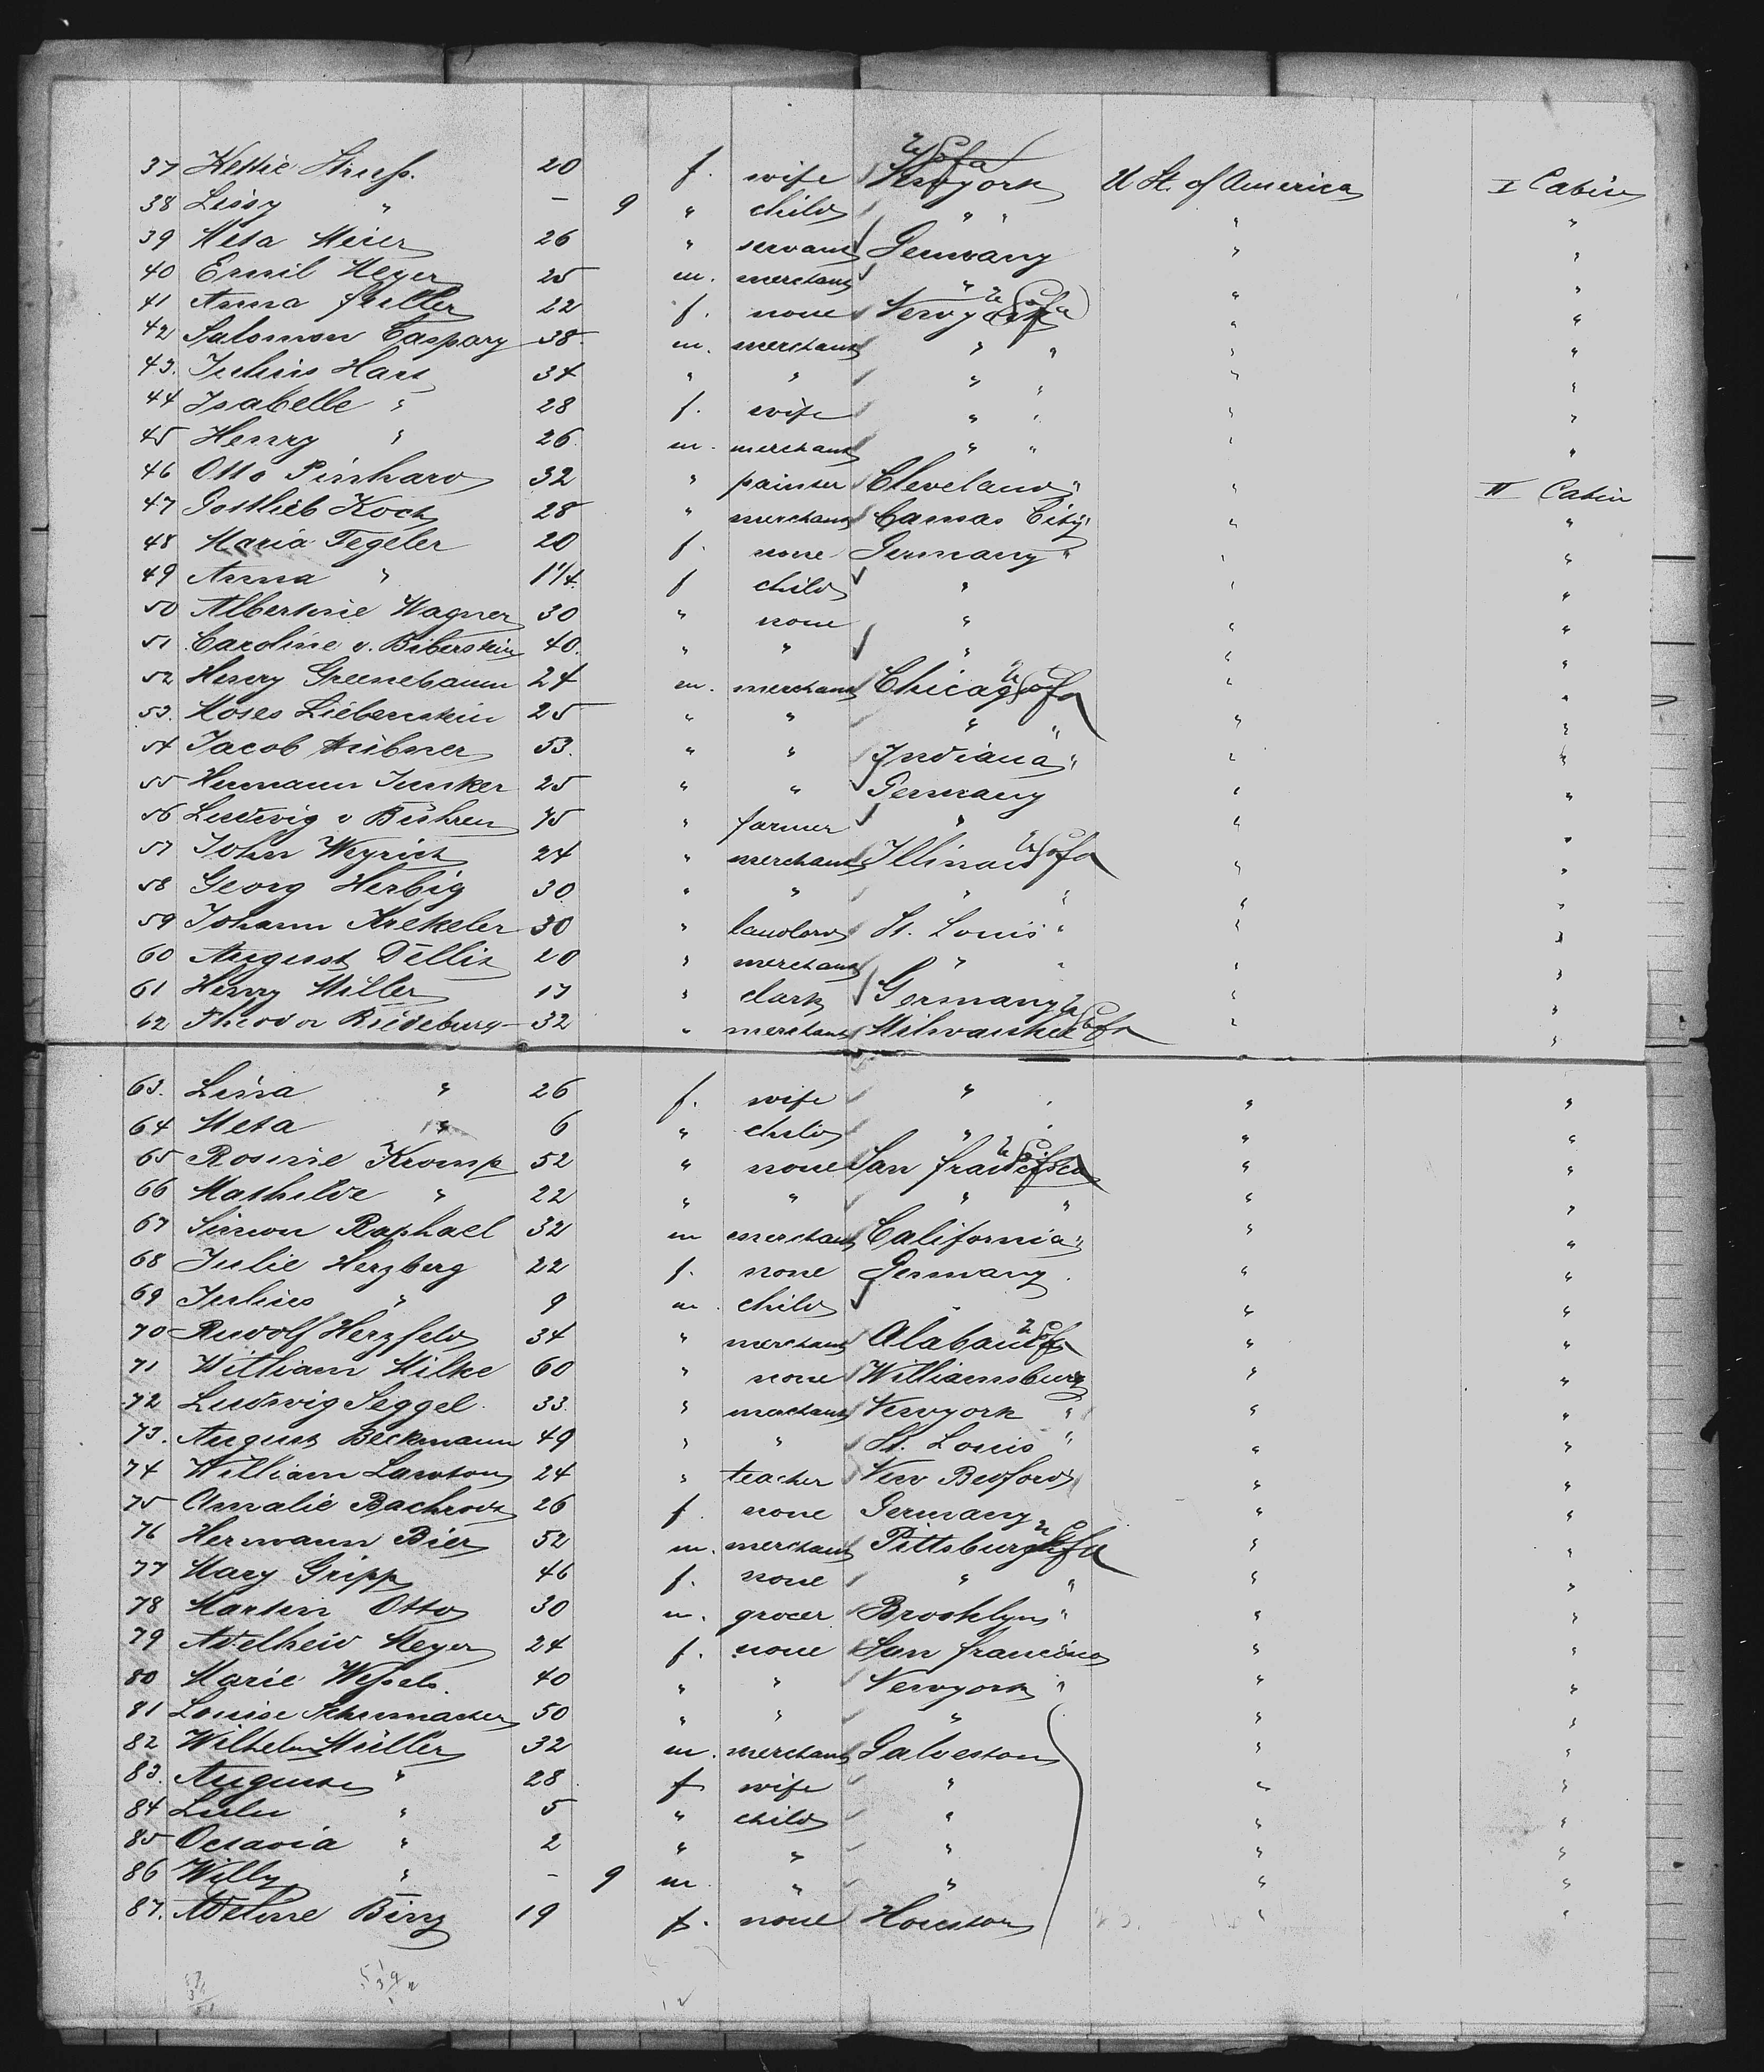 U S of a
37 Kettie Struß. 20 f. wife Newyork U St. of America I Cabin
38 Lissy " — 9 " child " " " "
39 Meta Meier 26 " servant Germany " "
40 Emil Meyer 25 m. merchant " " "
41 Anna fuller 22 f. none Newyork U S of a " "
42 Salomon Caspary 38. m. merchant " " " "
43. Julius Hart 34 " " " " " "
44 Isabelle " 28 f. wife " " " "
45 Henry " 26. m. merchant " " " "
46 Otto Pinhard 32 " painter Cleveland " " II Cabin
47 Gottlieb Koch 28 " merchant Cansas City " " "
48 Maria Tegeler 20 f. none Germany " " "
49 Anna " 1 1/4. f child " " "
50 Albertine Wagner 30 " none " " "
51 Caroline v. Biberstein 40. " " " " "
52 Henry Greenebaum 24 m. merchant Chicago U S of a " "
53. Moses Liebenstein 25 " " " " " "
54 Jacob Hübner 53. " " Indiana " " "
55 Hermann Junker 25 " " Germany " "
56 Ludwig v Bühren 45 " farmer " " "
57 John Weyrich 24 " merchant Illinois U S of a " "
58 Georg Herbig 30 " " " " " "
59 Johann Krekeler 30 " landlord St. Louis " " "
60 August Dellit 20 " merchant " " " "
61 Henry Miller 17 " clark Germany " "
62 Theodor Riedeburg 32 " merchant Milwaukee U S of a " "
63. Lina " 26 f. wife " " " "
64 Meta " 6 " child " " " "
65 Rosine Kromp 52 " none San francisco U S of a " "
66 Mathilde " 22 " " " " " "
67 Simon Raphael 32 m merchant California " " "
68 Julie Herzberg 22 f. none Germany " "
69 Julius " 9 m. child " " "
70 Rudolf Herzfeld 34 " merchant Alabama U S of a " "
71 William Milke 60 " none Williamsburg " "
72 Ludwig Seggel 33. " merchant Newyork " " "
73. August Beckmann 49 " " St. Louis " " "
74 William Lawton 24 " teacher New Bedford " "
75 Amalie Bachrach 26 f. none Germany " "
76 Hermann Bier 52 m. merchant Pittsburg U S of a " "
77 Mary Gripp 46 f. none " " " "
78 Martin Otto 30 m. grocer Brooklyn " " "
79 Adelheid Meyer 24 f. none San francisco " "
80 Marie Weßels. 40 " " Newyork " " "
81 Louise Schumacher 50 " " " " "
82 Wilhelm Müller 32 m. merchant Galveston " "
83. Auguste " 28. f wife " " "
84 Lulu " 5 " child " " "
85 Octavia " 2 " " " " "
86 Willy " — 9 m " " " "
87. Adeline Bing 19 f. none Houston " "